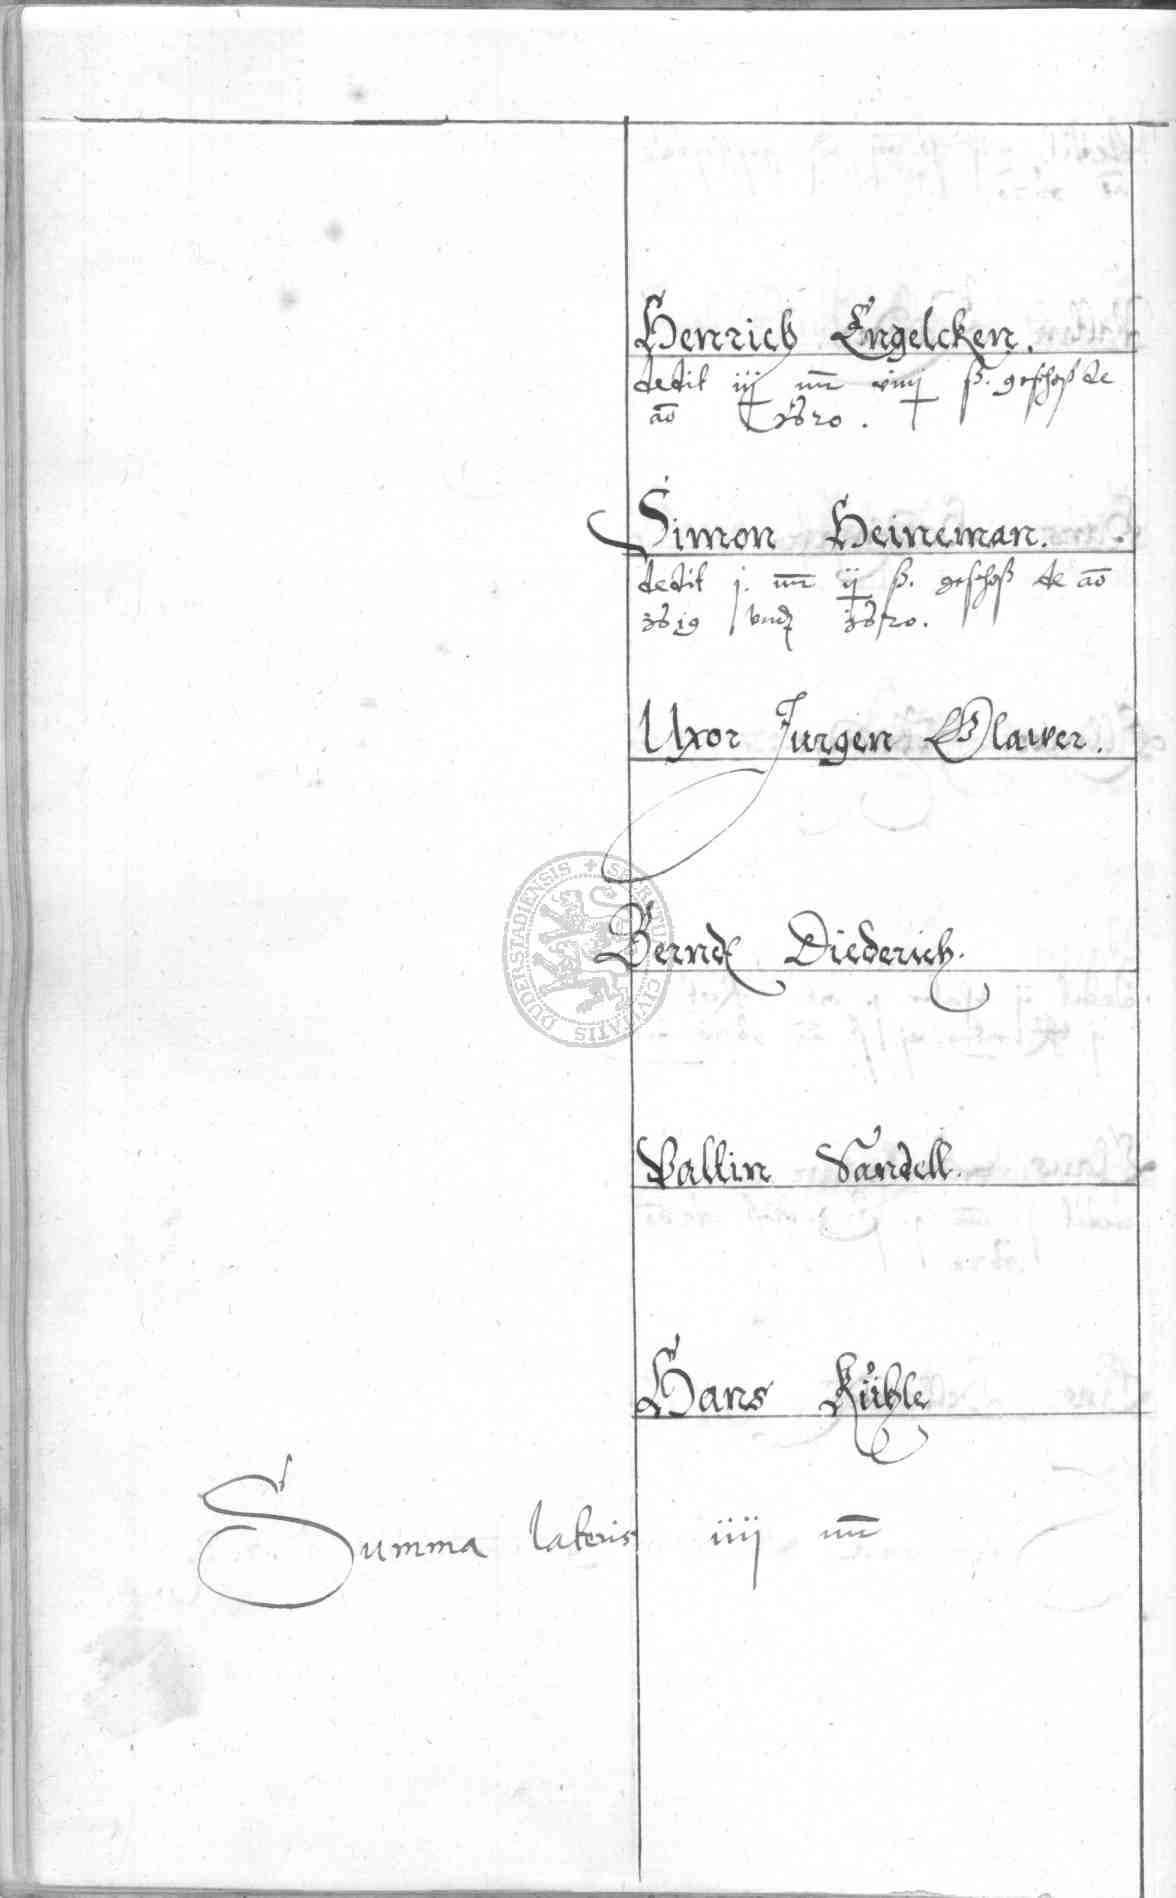 Henrich Engelcken.
dedit iij mr viiij ß. geschoß de
ao 1620.
Simon Heineman.
dedit j. mr ij ß. geschoß de ao
1619 vnd 1620.
Uxor Jurgen Glawer.
Berndt Diederich.
Valtin Sandell.
Hans Kühle
Summa lateris iiij mr
CIVITATIS DUDERSTADIENSIS